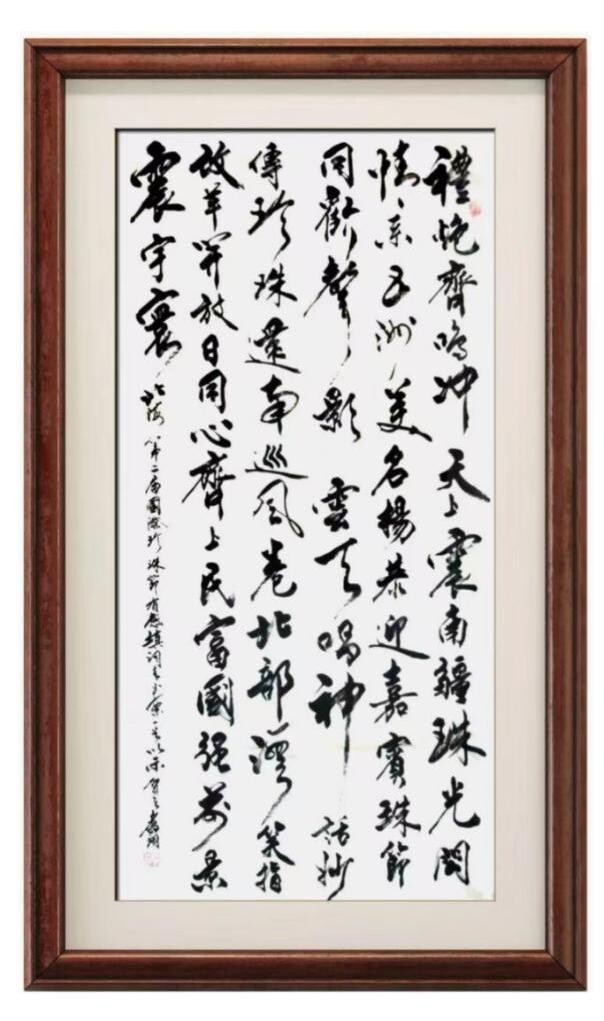 禮炮齊鳴冲天上震南疆珠光閃
情系五洲美名楊恭迎嘉賓珠節
同歡聲影雲天唱神話妙
傳珍珠還南巡風卷北部灣笑指
改革開放日同心齊上民富國强前景
震宇寰
北海第二届國際珍珠節有感填詞